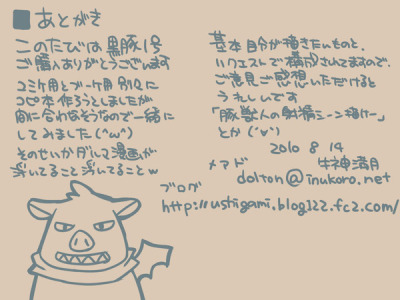 あとがき
このたびは黒豚1号
ご購入ありがとうございます
コミケ用とブーケ用別々に
コピ本作ろうとしましたが
間に合わなそうなので一緒に
してみました(^ω^)
そのせいかダルマ漫画が
浮いてること浮いてることw
基本自分が描きたいものと、
リクエストで構成されてますので、
ご意見ご感想いただけると
うれしいです
「豚獣人の射精シーン描けー」
とか(´∀`)
2010 8 14
牛神満月
メアド
dolton@inukoro.net
ブログ
http://ushigami.blog122.fc2.com/